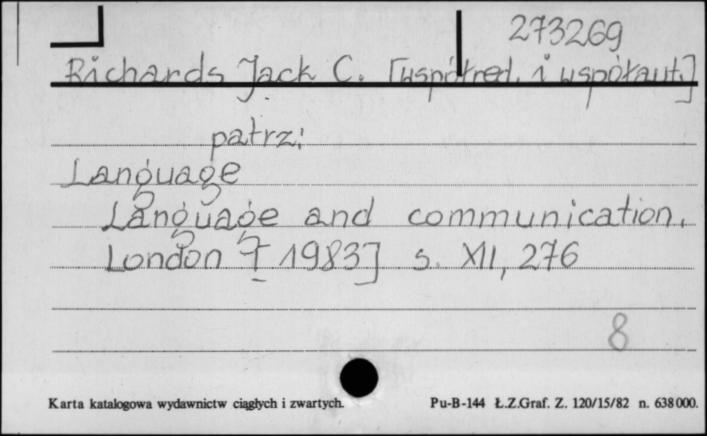 273269
Richards Jack C. [współred. i współaut.]
patrz:
Language
Language and communication.
London [1983] s. XII, 276
8
Karta katalogowa wydawnictw ciągłych i zwartych.
Pu-B-144 Ł.Z.Graf. Z. 120/15/82 n. 638000.